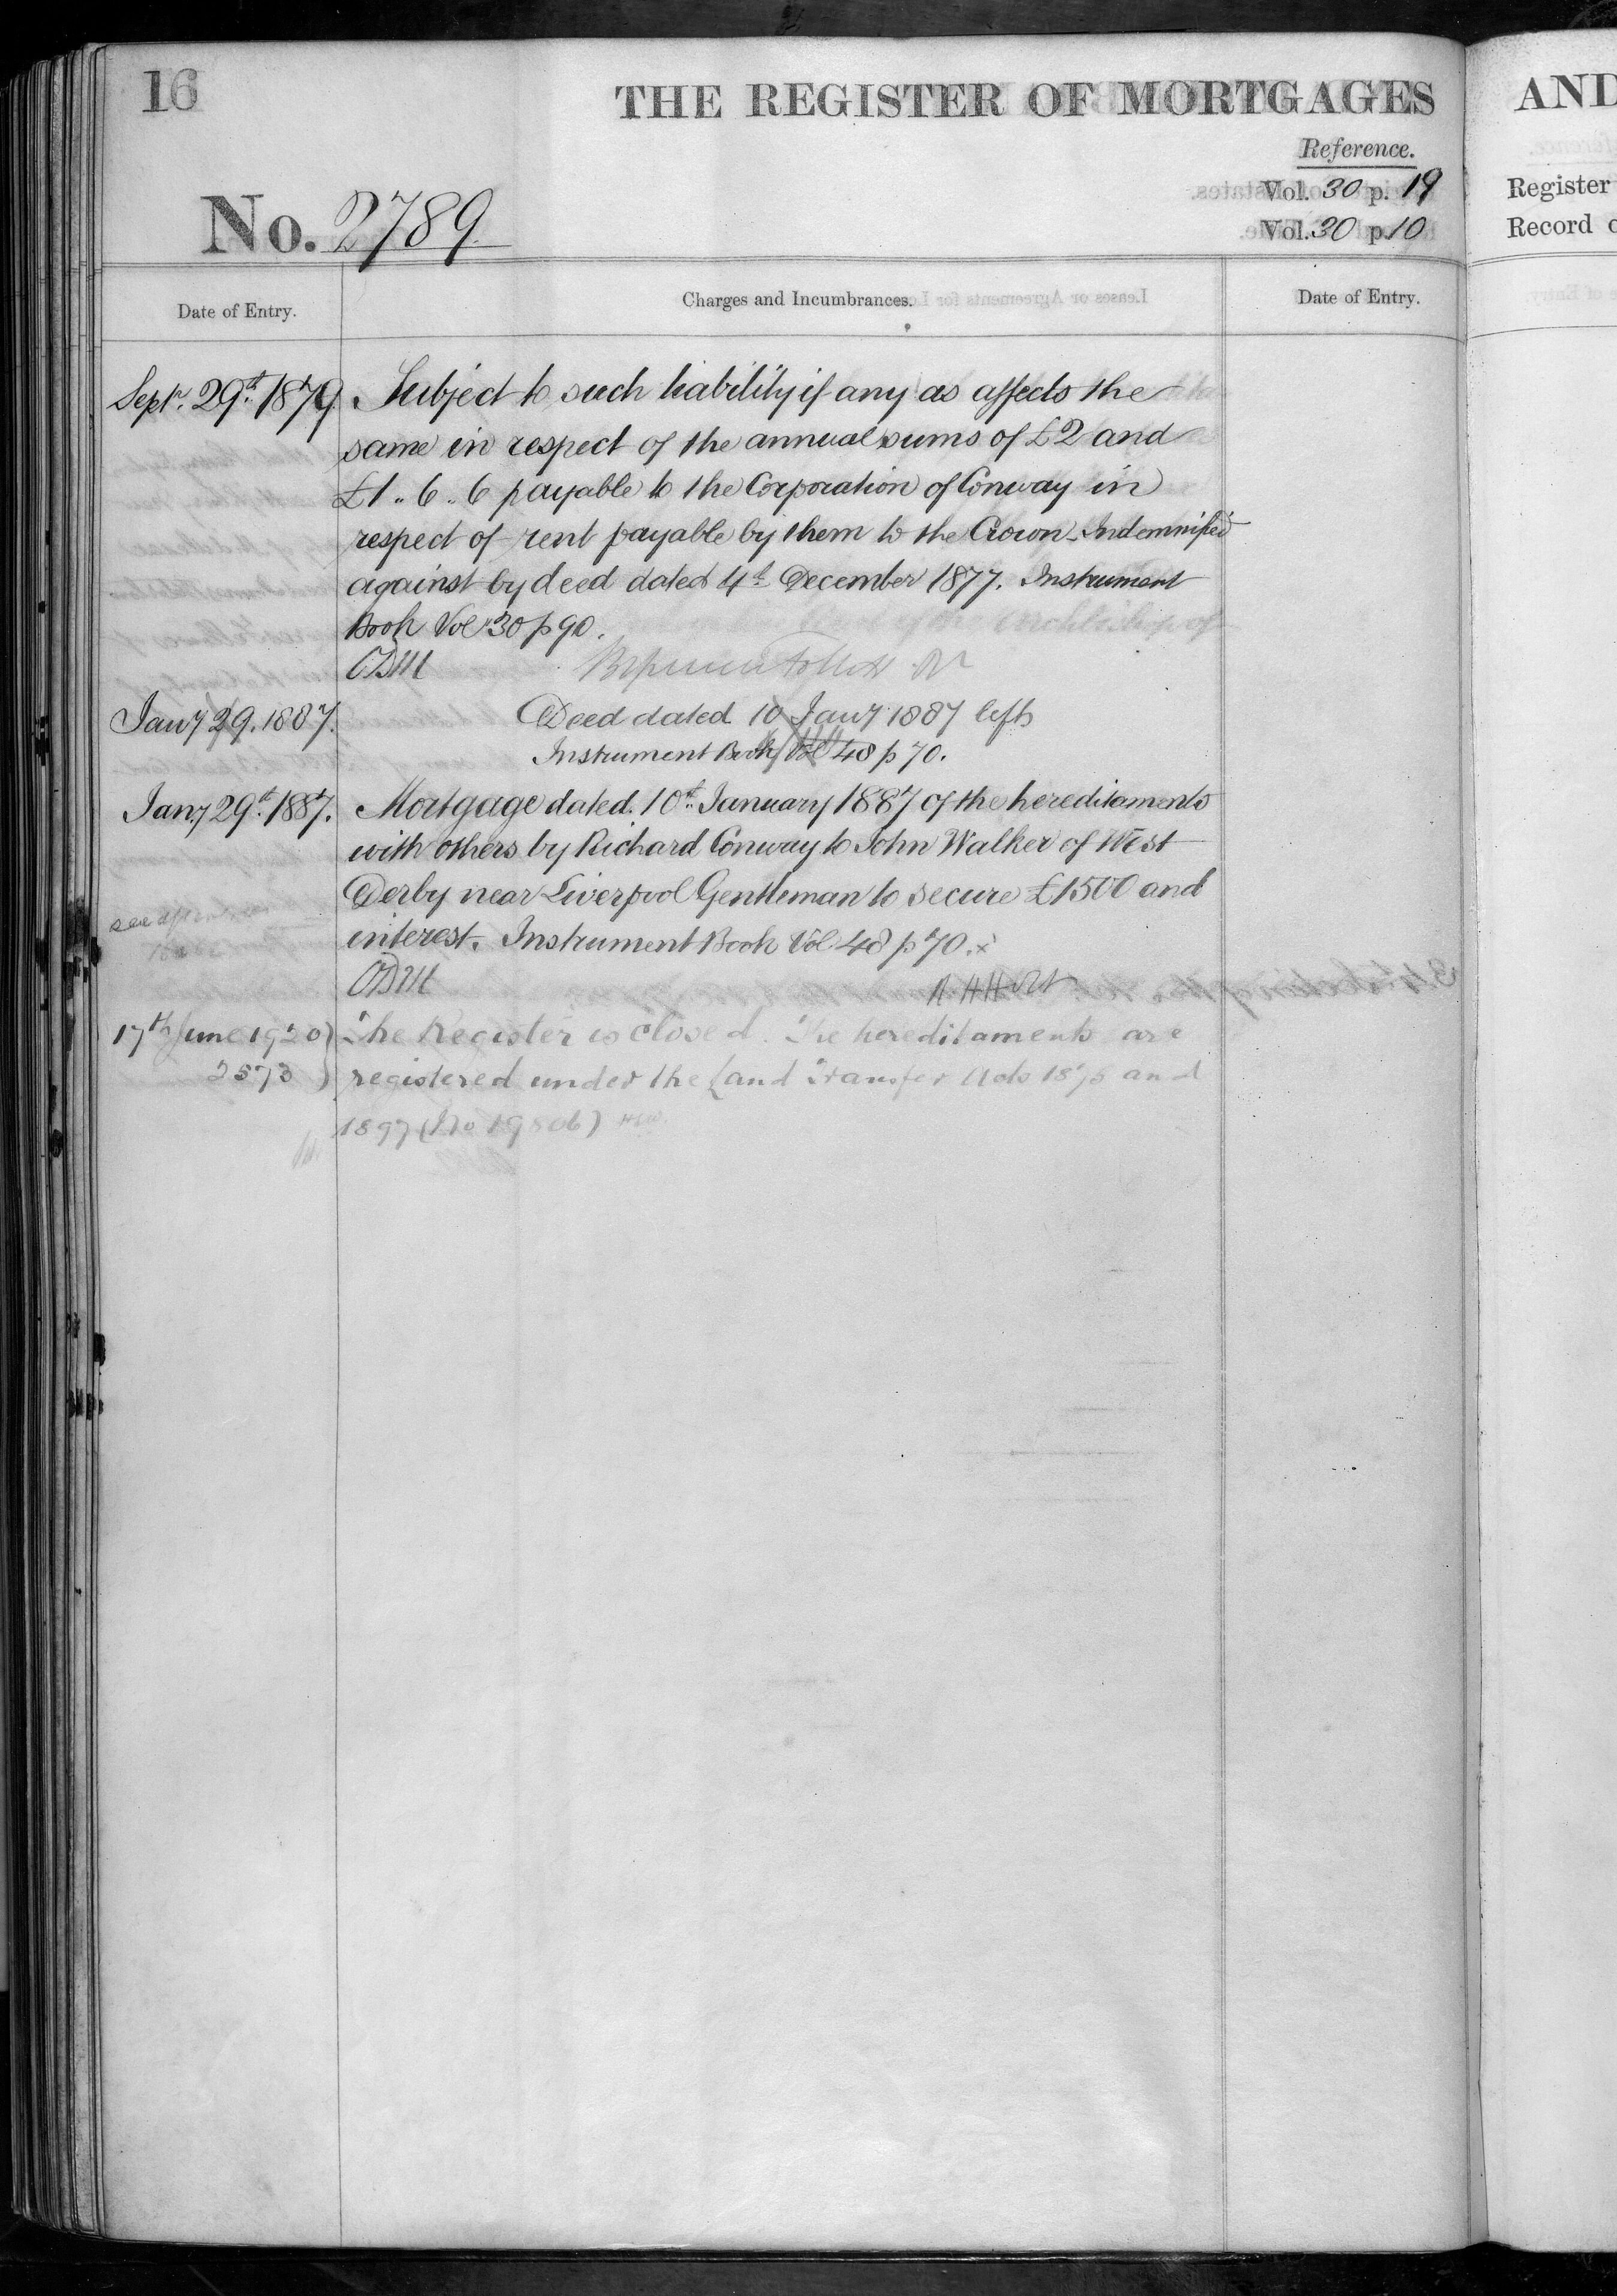 16
THE REGISTER OF MORTGAGES
AND
Reference.
Vol. 30 p. 19
Register
No. 2789
Vol. 30 p 10
Record
Date of Entry.
Charges and Incumbrances.
Date of Entry.
Septr. 29th 1879. Subject to such liability if any as affects the
same in respect of the annual sums of £2 and
£1 „ 6 „ 6 payable to the Corporation of Conway in
respect of rent payable by them to the Crown. Indemnified
against by deed dated 4th December 1877. Instrument
Book Vol 30 p 90.
Jany 29. 1887. Deed dated 10 Jany 1887 left
Instrument Book Vol 48 p 70.
Jany 29th 1887. Mortgage dated 10th January 1887 of the hereditaments
with others by Richard Conway to John Walker of West
Derby near Liverpool Gentleman to secure £1500 and
interest. Instrument Book Vol 48 p 70. x
17th June 1920) The Register is closed. The hereditaments are
2573 ) registered under the Land Transfer Acts 1875 and
1897 (No 19806)